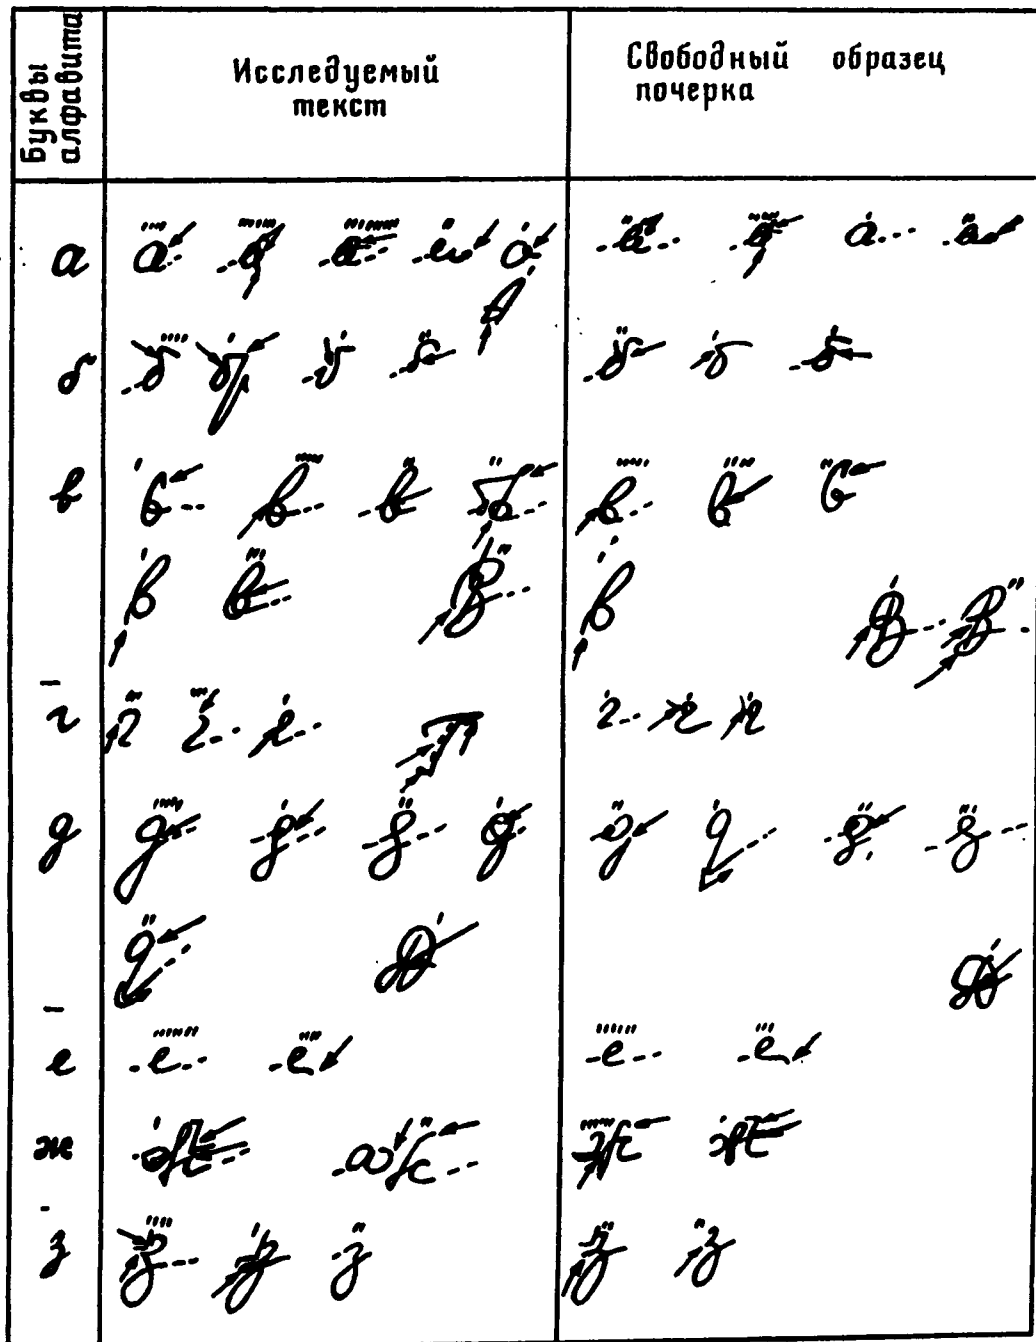 Буквы алфавита
Исследуемый текст
Свободный образец почерка
а
а а а а а
а а а а
б
б б б б
б б б
в
в в в
в в в
в в В
в В В
г
г г г
г г г
д
д д д д
д д д д
д Д
Д
е
е е
е е
ж
ж ж
ж ж
з
з з з
з з